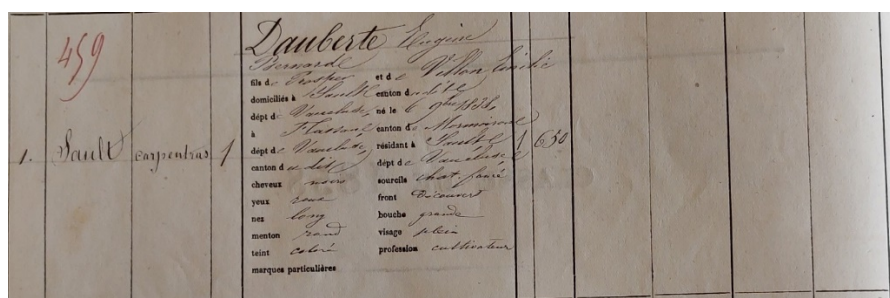 459
Dauberte Eugène
Bernard
fils de Prosper et de Villon Emilie
domiciliés à Sault canton dudit
dépt de Vaucluse, né le 6 9bre
à Flassan canton de Mormoiron
1. Sault carpentras 1 dépt de Vaucluse, résidant à Sault 1 650
canton dudit dépt de Vaucluse
cheveux noirs sourcils chat. foncé
yeux roux front Découvert
nez long bouche grande
menton rond visage plein
teint coloré profession cultivateur
marques particulières